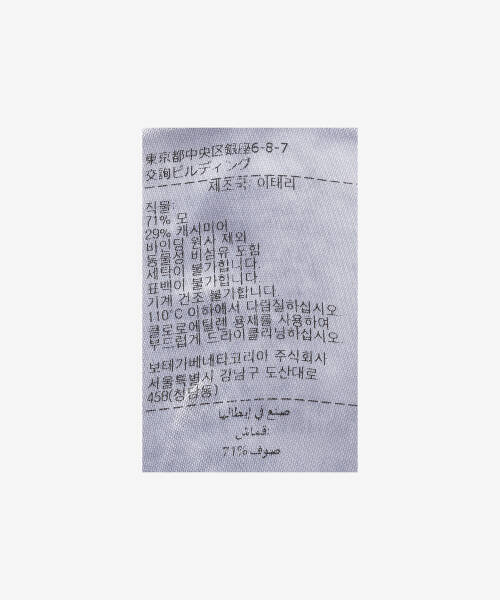 東京都中央区銀座6-8-7
交詢ビルディング
제조국: 이태리
직물:
71% 모
29% 캐시미어
바인딩 원사 제외
동물성 비섬유 포함
세탁이 불가합니다.
표백이 불가합니다.
기계 건조 불가합니다.
110°C 이하에서 다림질하십시오.
클로로에틸렌 용제를 사용하여
부드럽게 드라이클리닝하십시오.
보테가베네타코리아 주식회사
서울특별시 강남구 도산대로
458(청담동)
صنع في إيطاليا
قماش:
71% صوف